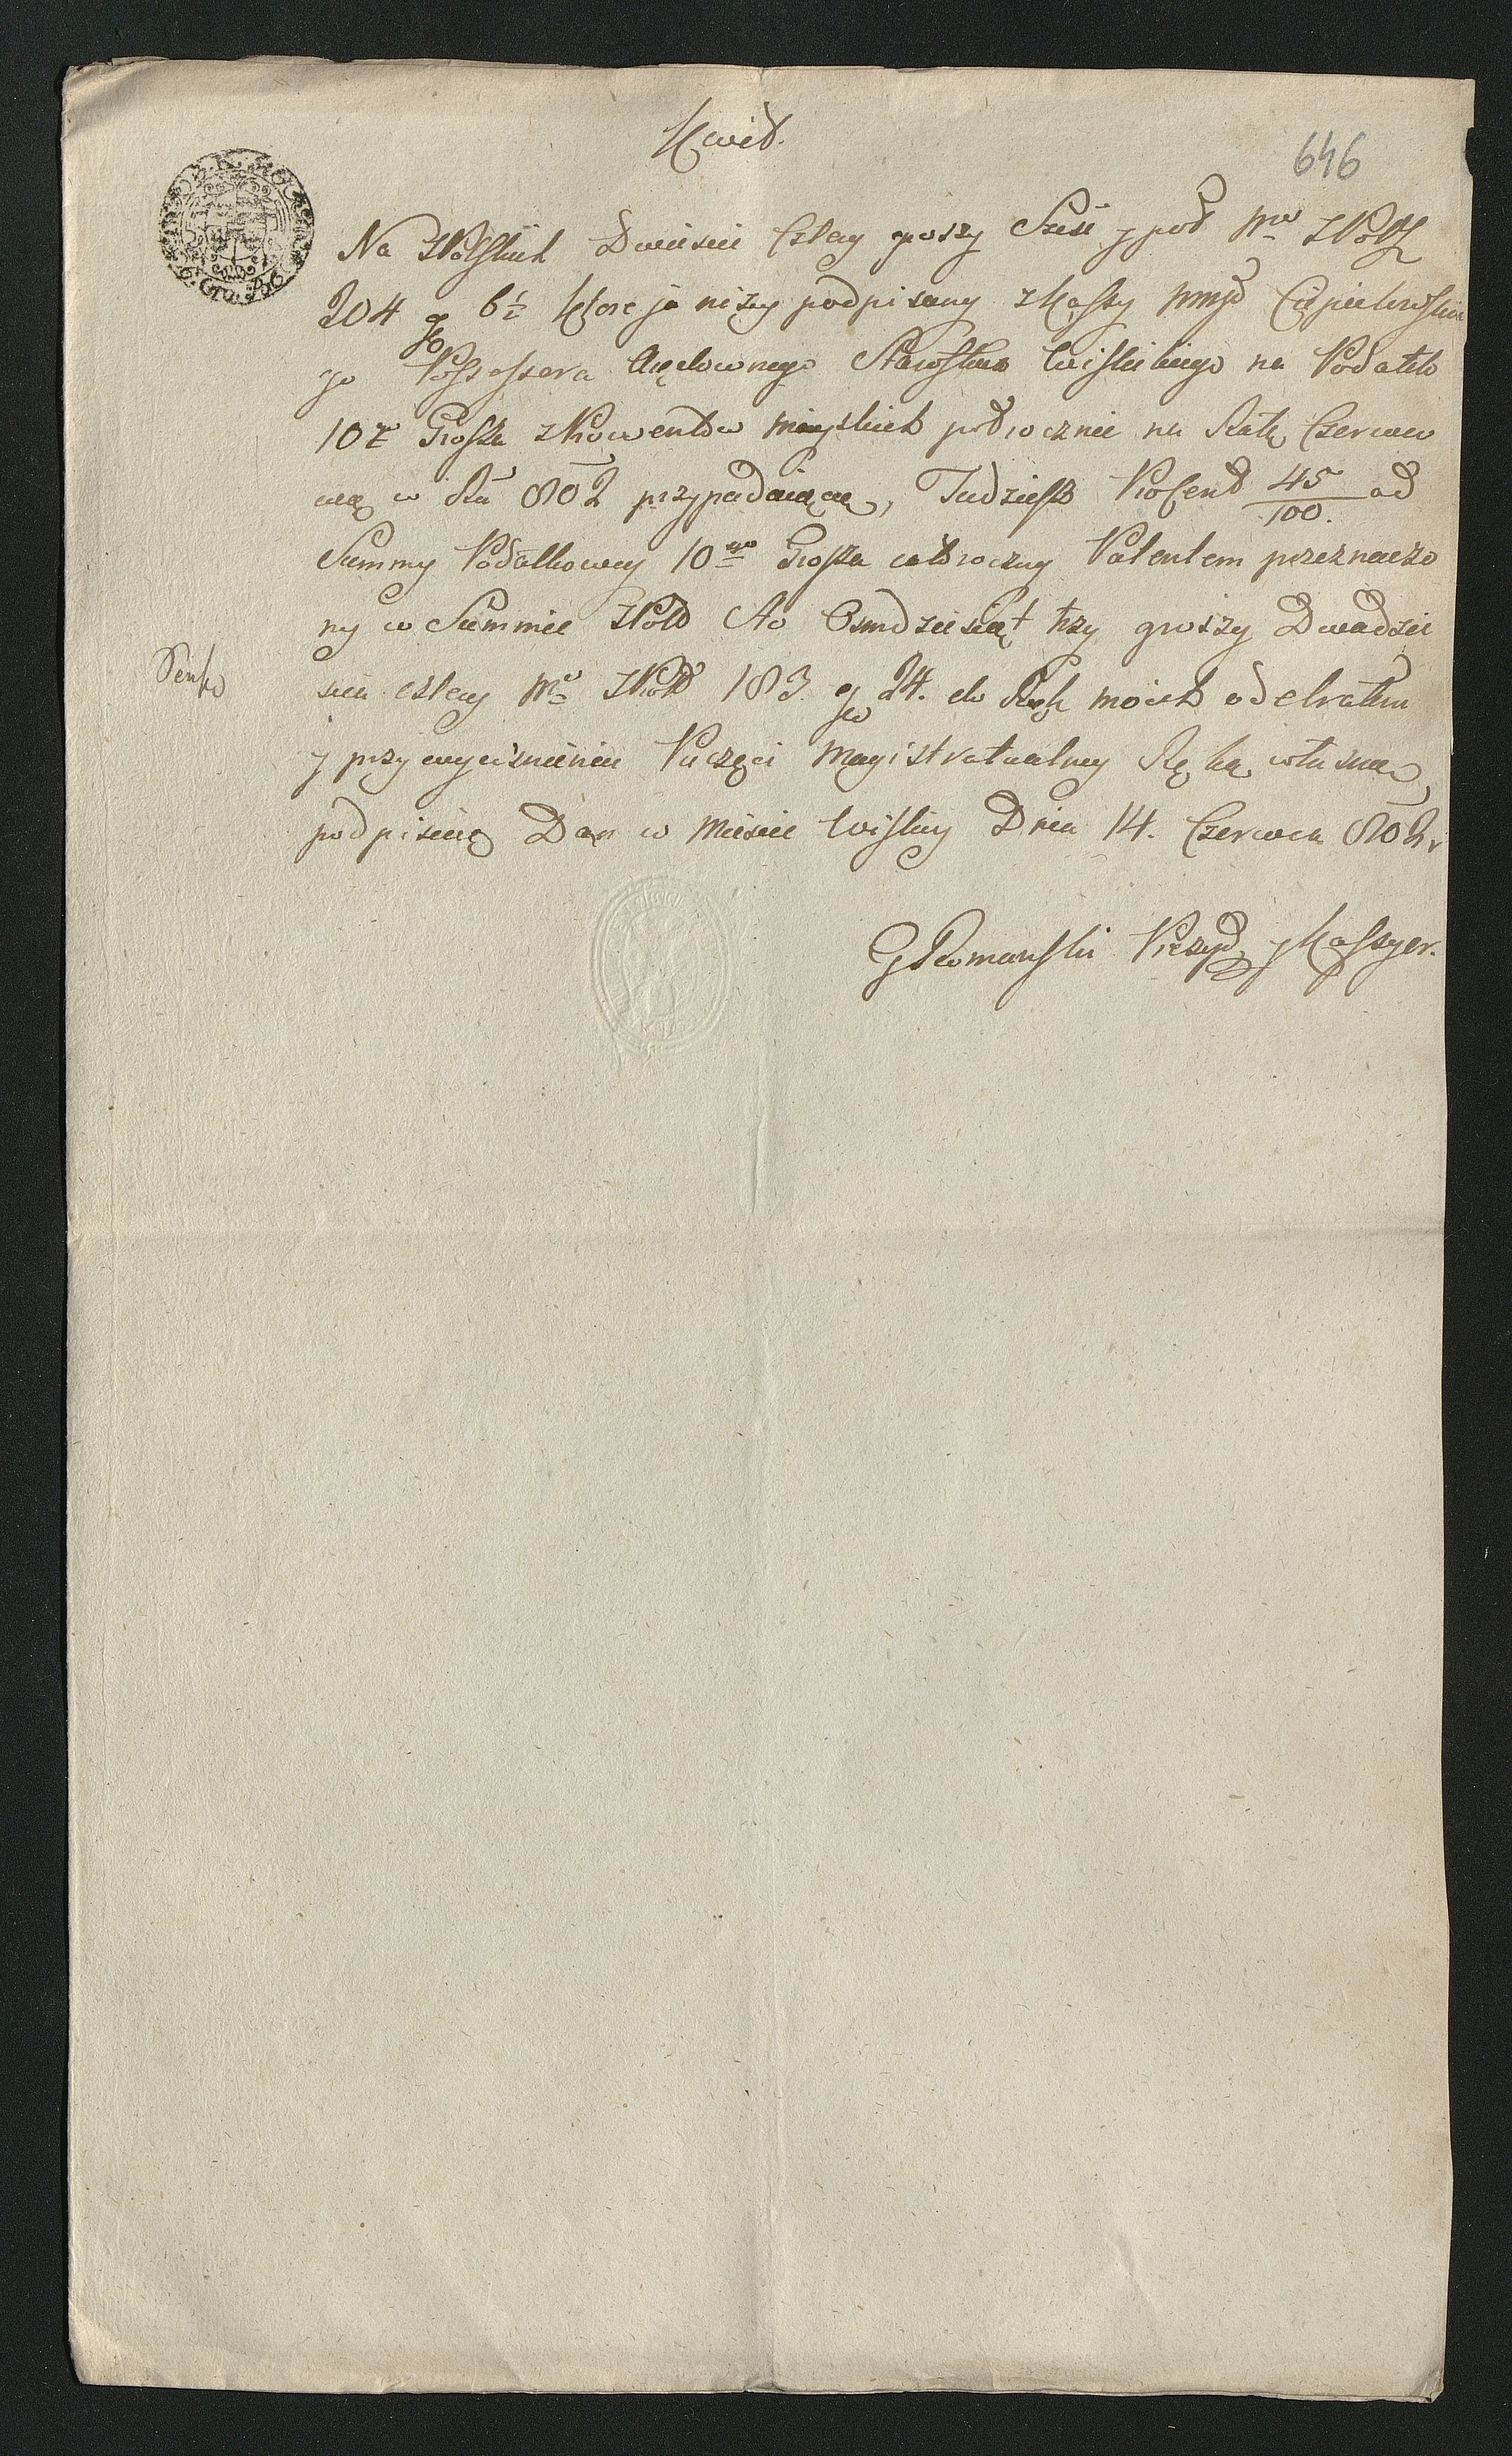 Kwit.
646
Na złotSkich Dwiescie Cztery groszy Sześć y poł Nro złPolS
204 gr 6½ Które ja niżey podpisany z Kassy Cispielewskie
go Possessera Starostwa Wislickiego na Podatek
10 Grosza z Prowentow mieyskich połrocznie na Ratę Czerwco
wą w Ru 802 przypadaiącą, Tudziesz Procent 45/100. od
Summy Podatkowey 10go Grosza całoroczny Patentem przeznaczo
ny w Summie złPol Sto Osmdziesiąt trzy groszy Dwadzie
scia cztery No złPol 183 gr 24. do Rąk moich odebrałem
y przy wyciśnieniu Pieczęci Magistratualney Ręką własną
podpisuię Dan w Miescie Wislicy Dnia 14. Czerwca 802 r
G Romanski Prezyd y Kassyer.